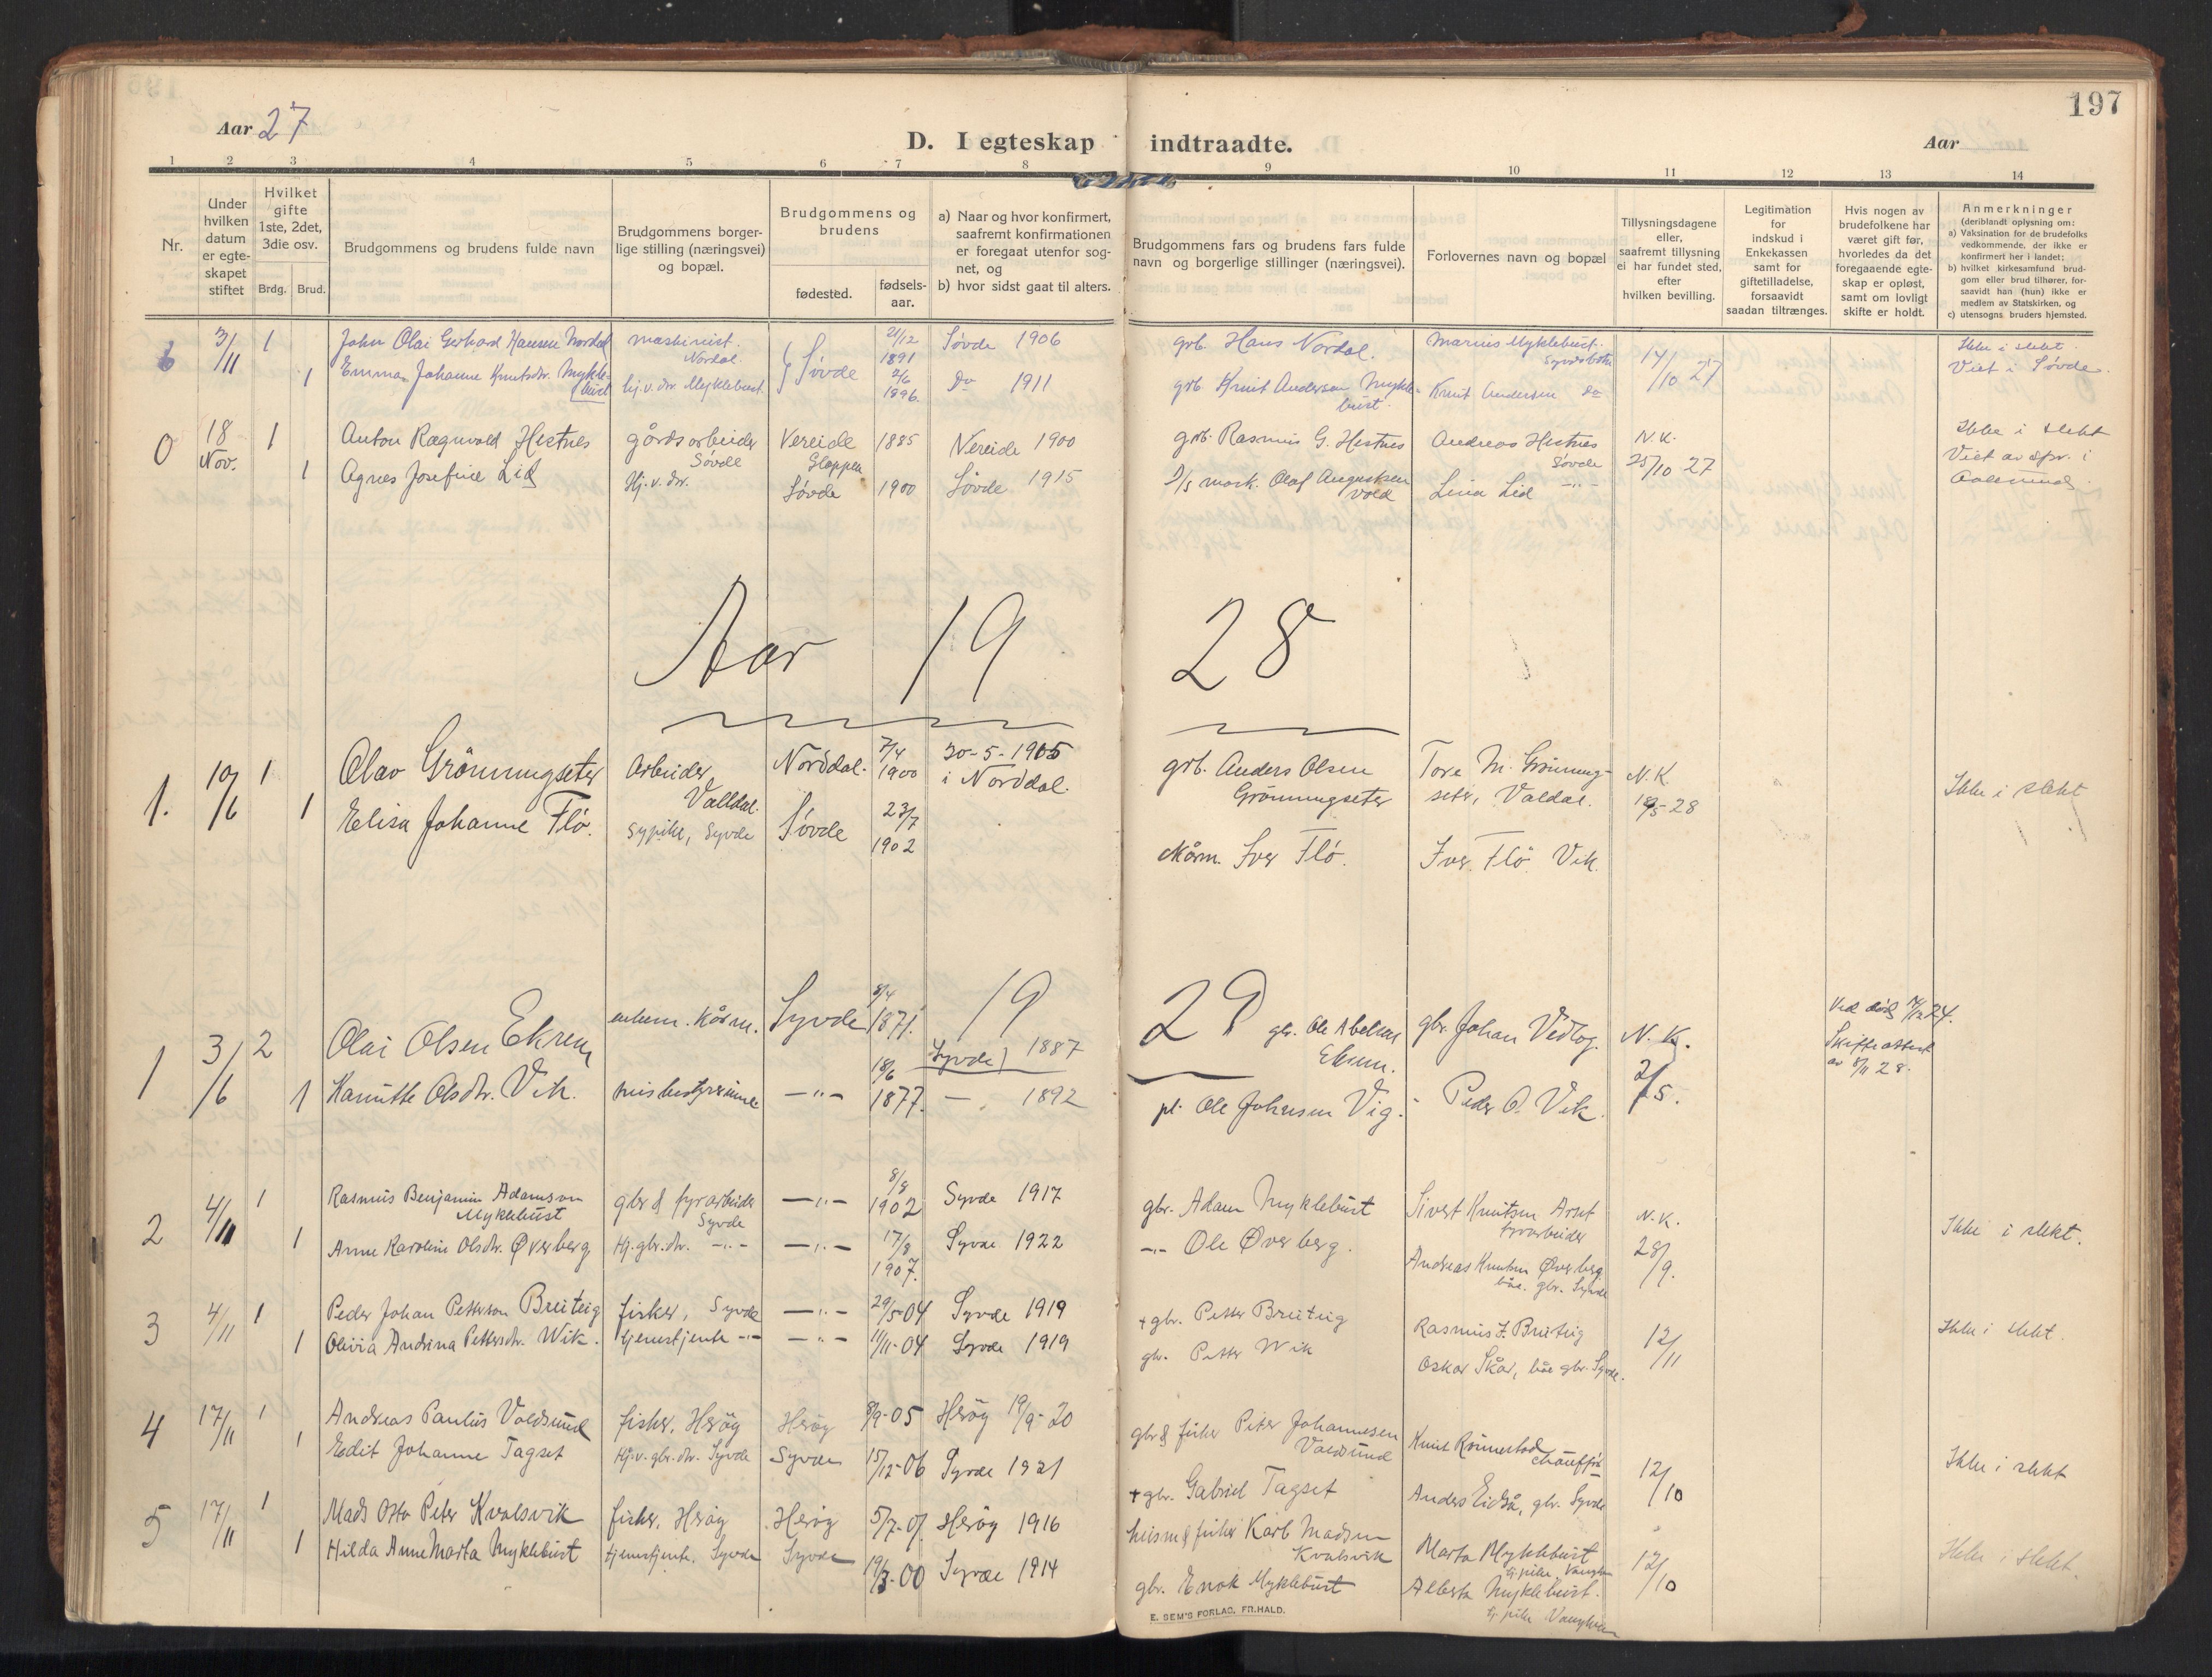 197
Aar 27
D. I egteskap indtraadte.
Aar
1 2 3 4 5 6 7 8 9 10 11 12 13 14
Nr.
Under hvilken datum er egte-skapet stiftet
Hvilket gifte 1ste, 2det, 3die osv.
Brdg. Brud.
Brudgommens og brudens fulde navn
Brudgommens borger-lige stilling (næringsvei) og bopæl.
Brudgommens og brudens
fødested.
fødsels-aar.
a) Naar og hvor konfirmert, saafremt konfirmationen er foregaat utenfor sog-net, og
b) hvor sidst gaat til alters.
Brudgommens fars og brudens fars fulde navn og borgerlige stillinger (næringsvei).
Forlovernes navn og bopæl
Tillysningsdagene eller, saafremt tillysning ei har fundet sted, efter hvilken bevilling.
Legitimation for indskud i Enkekassen samt for giftetilladelse, forsaavidt saadan tiltrænges.
Hvis nogen av brudefolkene har været gift før, hvorledes da det foregaaende egte-skap er opløst, samt om lovligt skifte er holdt.
Anmerkninger
(deriblandt oplysning om:
a) Vaksination for de brudefolks vedkommende, der ikke er konfirmert her i landet;
b) hvilket kirkesamfund brud-gom eller brud tilhører, for-saavidt han (hun) ikke er medlem av Statskirken, og
c) utensogns bruders hjemsted.
6 3/11 1 John Olai Gerhard Hansen Nordal maskinist. Nordal. Søvde 21/12 1891 Søvde 1906 grb. Hans Nordal. Marius Myklebust. Syvdsbotn 14/10 27 Ikke i slekt.
1 Emma Johanne Knutsdr. Myklebust hj.v. dr. Myklebust 2/6 1896. Do 1911 grb. Knut Andersen Myklebust. Knut Andersen Do Viet i Søvde.
0 18 Nov. 1 Anton Ragnvald Hestnes gårdsarbeider Søvde Vereide Gloppen 1885 Vereide 1900 grb. Rasmus G. Hestnes Andreas Hestnes Søvde N.K. 25/10 27 Ikke i slekt
1 Agnes Josefine Lid Hj.v. dr. Søvde 1900 Søvde 1915 Olaf Augustsen Vold Lina Lid -"- Viet av i Aalesund
Aar 19 28
1. 10/6 1 Olav Grönningseter Arbeider Valldal. Norddal. 7/4 1900 30-5-1915 i Norddal. grb. Anders Olsen Grönningseter Tore M. Grönningseter, Valdal. N.K. 19/5-28 Ikke i slekt
1 Elisa Johanne Flö. sypike, Syvde Søvde 23/7 1902 Iver Flö. Iver Flö Vik.
19 29
1 3/6 2 Olai Olsen Ekrem enkem. Kårm. Syvde 8/4 1871. Syvde 1887 gbr. Ole Abelsen Ekrem. gbr. Johan Vedlog. N.K. 2/5. Ved død 24. Skifteattest av 8/11 28.
1 Kanutte Olsdtr. Vik. husbestyrerinne -"- 18/6 1877. - 1892 pl. Ole Johnsen Vig. Peder O. Vik.
2 4/11 1 Rasmus Benjamin Adamson Myklebust gbr & fyrarbeider Syvde -"- 8/8 1902 Syvde 1917 gbr. Adam Myklebust Sivert Knutsen Arset fyrarbeider N.K. 28/9. Ikke i slekt.
1 Anne Karoline Olsdtr. Øverberg Hj.gbr.dtr. -"- -"- 17/8 1907. Syvde 1922 -"- Ole Øverberg. Andreas Knutsen Øverberg båe. gbr. Syvde
3 4/11 1 Peder Johan Petterson Breiteig fisker, Syvde -"- 29/5-04 Syvde 1919 + gbr. Petter Breiteig Rasmus J. Breiteig 12/11 Ikke i slekt.
1 Olivia Andrina Pettersdtr. Wik. tjenestjente -"- -"- 11/11-04 Syvde 1919 gbr. Petter Wik Oskar Skår, båe gbr. Syvde.
4 17/11 1 Andreas Paulus Voldsund fisker, Herøy Herøy 8/9-05 Herøy 19/9-20 gbr & fisker Peter Johannesen Voldsund Knut Rönnestad chauffør 12/10 Ikke i slekt
1 Edit Johanne Tagset Hj.v. gbr. dtr. Syvde Syvde 15/12-06 Syvde 1921 + gbr. Gabriel Tagset Anders Eidså, gbr. Syvde
5 17/11 1 Mads Otto Peter Kvalsvik fisker, Herøy Herøy 5/7-01 Herøy 1916 husm & fisker Karl Madsen Kvalsvik Marta Myklebust tj.pike, Vanylven 12/10 Ikke i slekt.
1 Hilda Anne Marta Myklebust tjenestjente, Syvde Syvde 19/3-00 Syvde 1914 gbr. Enok Myklebust Alberta Myklebust. tj. pike Vanylven
E. SEM'S FORLAG, FR.HALD.